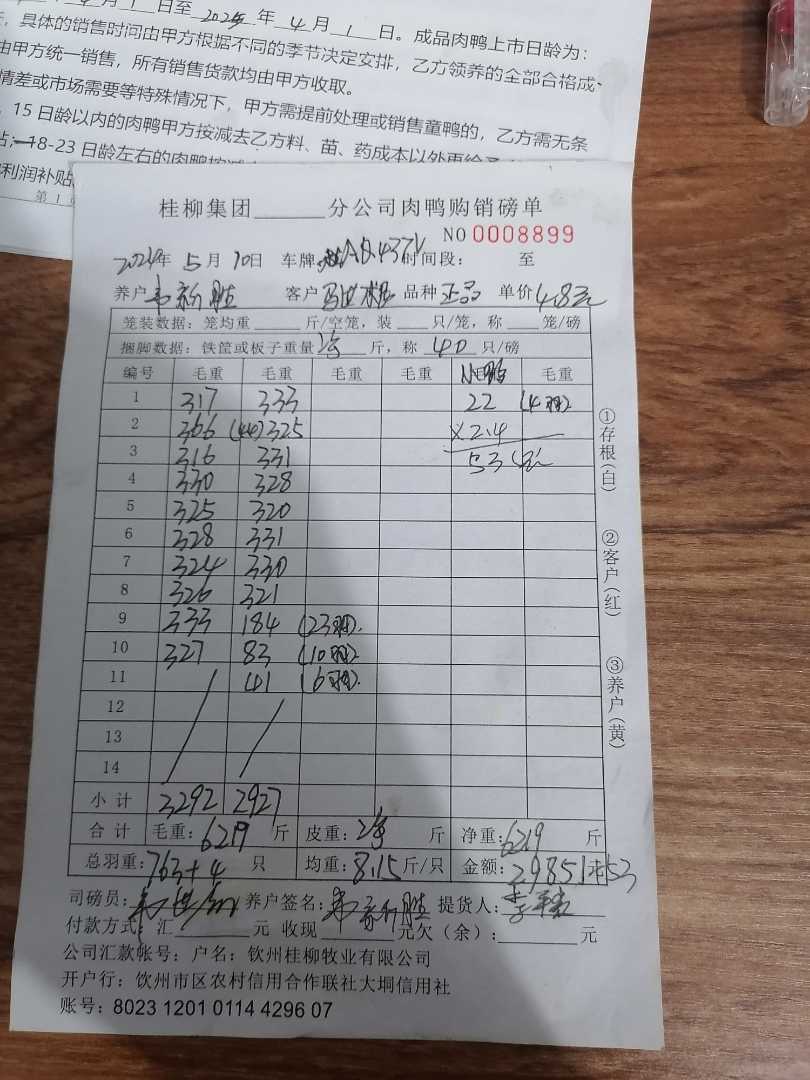 月 1 日至 2025 年 4 月 1 日。成品肉鸭上市日龄为：
，具体的销售时间由甲方根据不同的季节决定安排，乙方领养的全部合格成
由甲方统一销售，所有销售货款均由甲方收取。
情差或市场需要等特殊情况下，甲方需提前处理或销售童鸭的，乙方需无条
15 日龄以内的肉鸭甲方按减去乙方料、苗、药成本以外再给予
18-23 日龄左右的肉鸭按减
利润补贴
第 1
桂柳集团______分公司肉鸭购销磅单
NO 0008899
2024年 5月 10日 车牌 时间段： 至
养户 韦新胜 客户 品种 正品 单价 4.8元
笼装数据：笼均重____斤/空笼，装___只/笼，称____笼/磅
捆脚数据：铁筐或板子重量 斤，称 40 只/磅
编号 毛重 毛重 毛重 毛重 毛重 毛重
1 317 333 22 (4羽)
2 366 (44) 325 ×2.4
3 316 331 53元
4 330 328
5 325 320
6 328 331
7 324 330
8 326 321
9 333 184 (23羽)
10 327 83 (10羽)
11 41 (6羽)
12
13
14
小计 3292 2927
合计 毛重：6219 斤 皮重： 斤 净重：6219 斤
总羽重：763+4 只 均重：8.15斤/只 金额：29851+53
司磅员： 养户签名：韦新胜 提货人：
付款方式：汇______元 收现______元欠（余）：______元
公司汇款帐号：户名：钦州桂柳牧业有限公司
开户行：钦州市区农村信用合作联社大垌信用社
账号：8023 1201 0114 4296 07
①存根(白)
②客户(红)
③养户(黄)